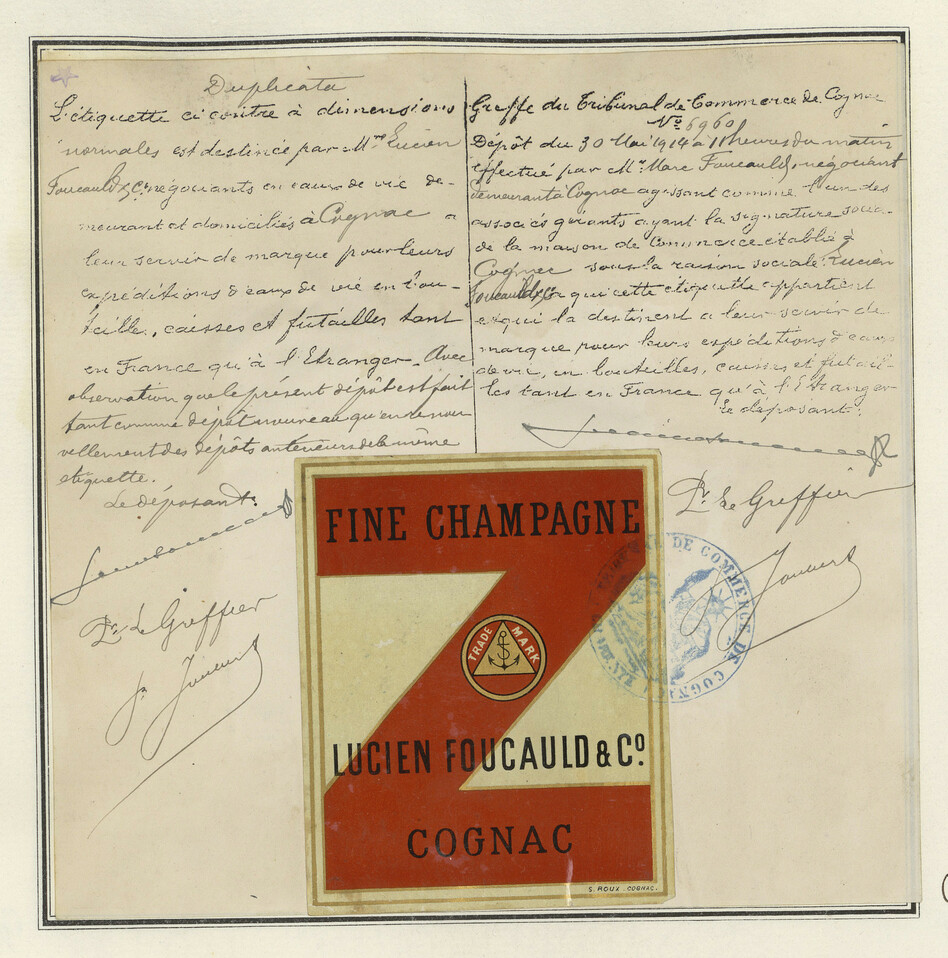 Duplicata
L'étiquette ci contre à dimensions
normales est destinée par Mrs Lucien
Foucauld & Co négociants en eaux de vie de-
meurant et domiciliés à Cognac a
leur servir de marque pour leurs
expéditions d'eaux de vie en bou-
teille, caisses et futailles tant
en France qu'à l'Etranger. Avec
observation que le présent dépôt est fait
tant comme dépôt nouveau qu'en renou-
vellement des dépôts antérieurs de la même
étiquette.
Le déposant:
Pr Le Greffier
Greffe du Tribunal de Commerce de Cognac
No 6960
Dépôt du 30 Mai 1914 à 11 heures du matin
effectué par Mr Marc Foucauld, négociant
demeurant à Cognac agissant comme l'un des
associés gérants ayant la signature sociale
de la maison de Commerce établie à
Cognac sous la raison sociale Lucien
Foucauld & Co a qui cette étiquette appartient
et qui la destinent a leur servir de
marque pour leurs expéditions d'eaux
de vie, en bouteilles, caisses et futail-
les tant en France qu'à l'Etranger
Le déposant:
Pr Le Greffier
FINE CHAMPAGNE
Z
TRADE MARK
LUCIEN FOUCAULD & Co
COGNAC
S. ROUX. COGNAC.
TRIBUNAL DE COMMERCE DE COGNAC